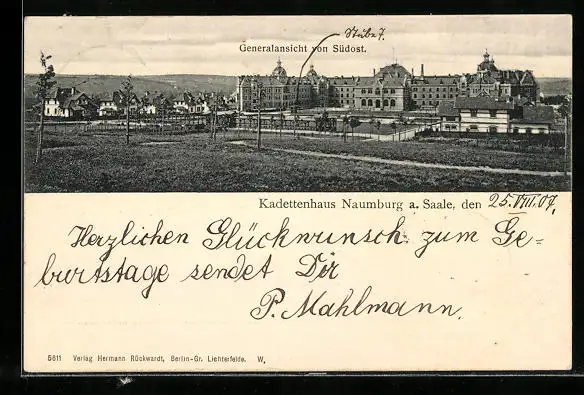 Stube 7.
Generalansicht von Südost.
Kadettenhaus Naumburg a. Saale, den 25. VIII. 07.
Herzlichen Glückwunsch zum Ge-
burtstage sendet Dir
P. Mahlmann.
5611 Verlag Hermann Rückwardt, Berlin-Gr. Lichterfelde. W.